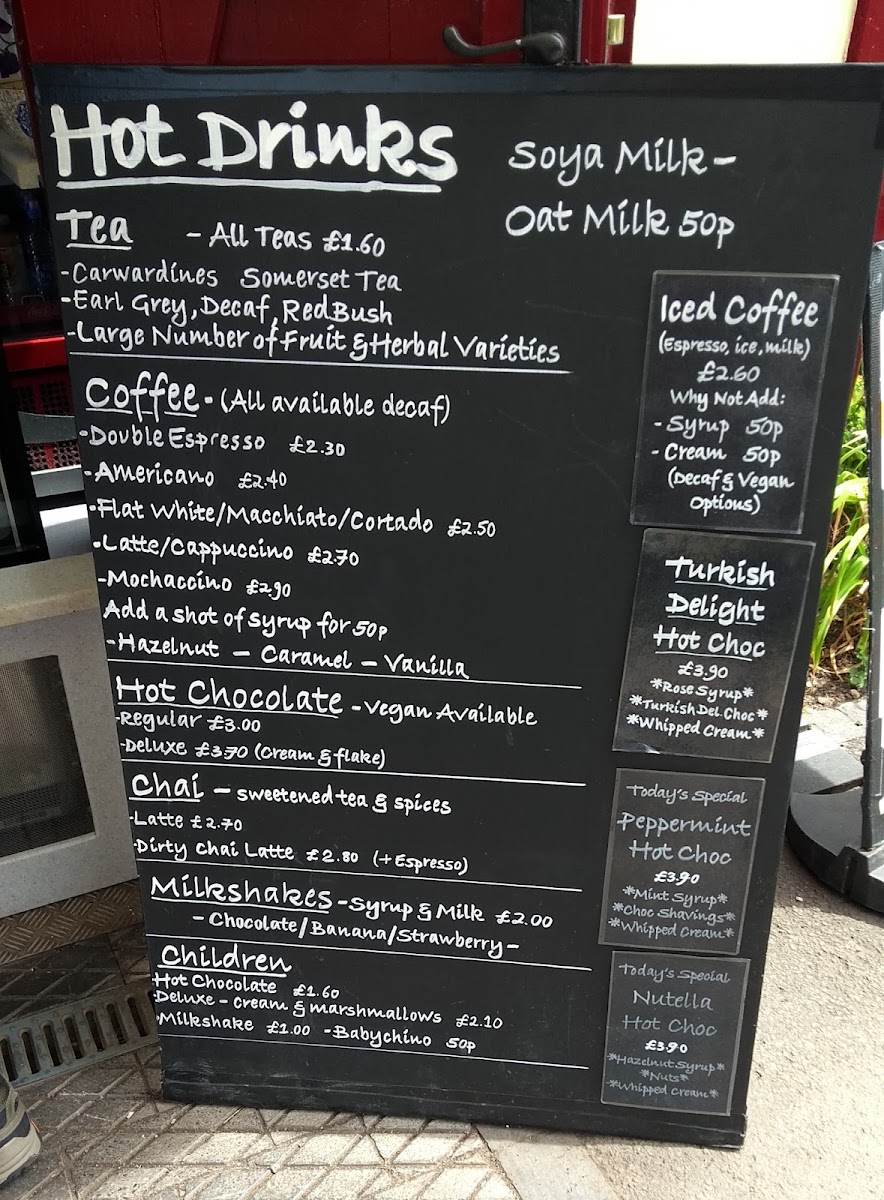 Hot Drinks
Soya Milk -
Oat Milk 50p
Tea - All Teas £1.60
- Carwardines Somerset Tea
- Earl Grey, Decaf, RedBush
- Large Number of Fruit & Herbal Varieties
Coffee - (All available decaf)
- Double Espresso £2.30
- Americano £2.40
- Flat White/Macchiato/Cortado £2.50
- Latte/Cappuccino £2.70
- Mochaccino £2.90
Add a shot of syrup for 50p
- Hazelnut - Caramel - Vanilla
Hot Chocolate - Vegan Available
- Regular £3.00
- Deluxe £3.70 (Cream & flake)
Chai - sweetened tea & spices
- Latte £2.70
- Dirty Chai Latte £2.80 (+Espresso)
Milkshakes - Syrup & Milk £2.00
- Chocolate/Banana/Strawberry -
Children
- Hot Chocolate £1.60
- Deluxe - cream & marshmallows £2.10
- Milkshake £1.00 - Babychino 50p
Iced Coffee
(Espresso, ice, milk)
£2.60
Why Not Add:
- Syrup 50p
- Cream 50p
(Decaf & Vegan
Options)
Turkish
Delight
Hot Choc
£3.90
*Rose Syrup*
*Turkish Del. Choc*
*Whipped Cream*
Today's Special
Peppermint
Hot Choc
£3.90
*Mint Syrup*
*Choc Shavings*
*Whipped Cream*
Today's Special
Nutella
Hot Choc
£3.90
*Hazelnut Syrup*
*Nuts*
*Whipped Cream*